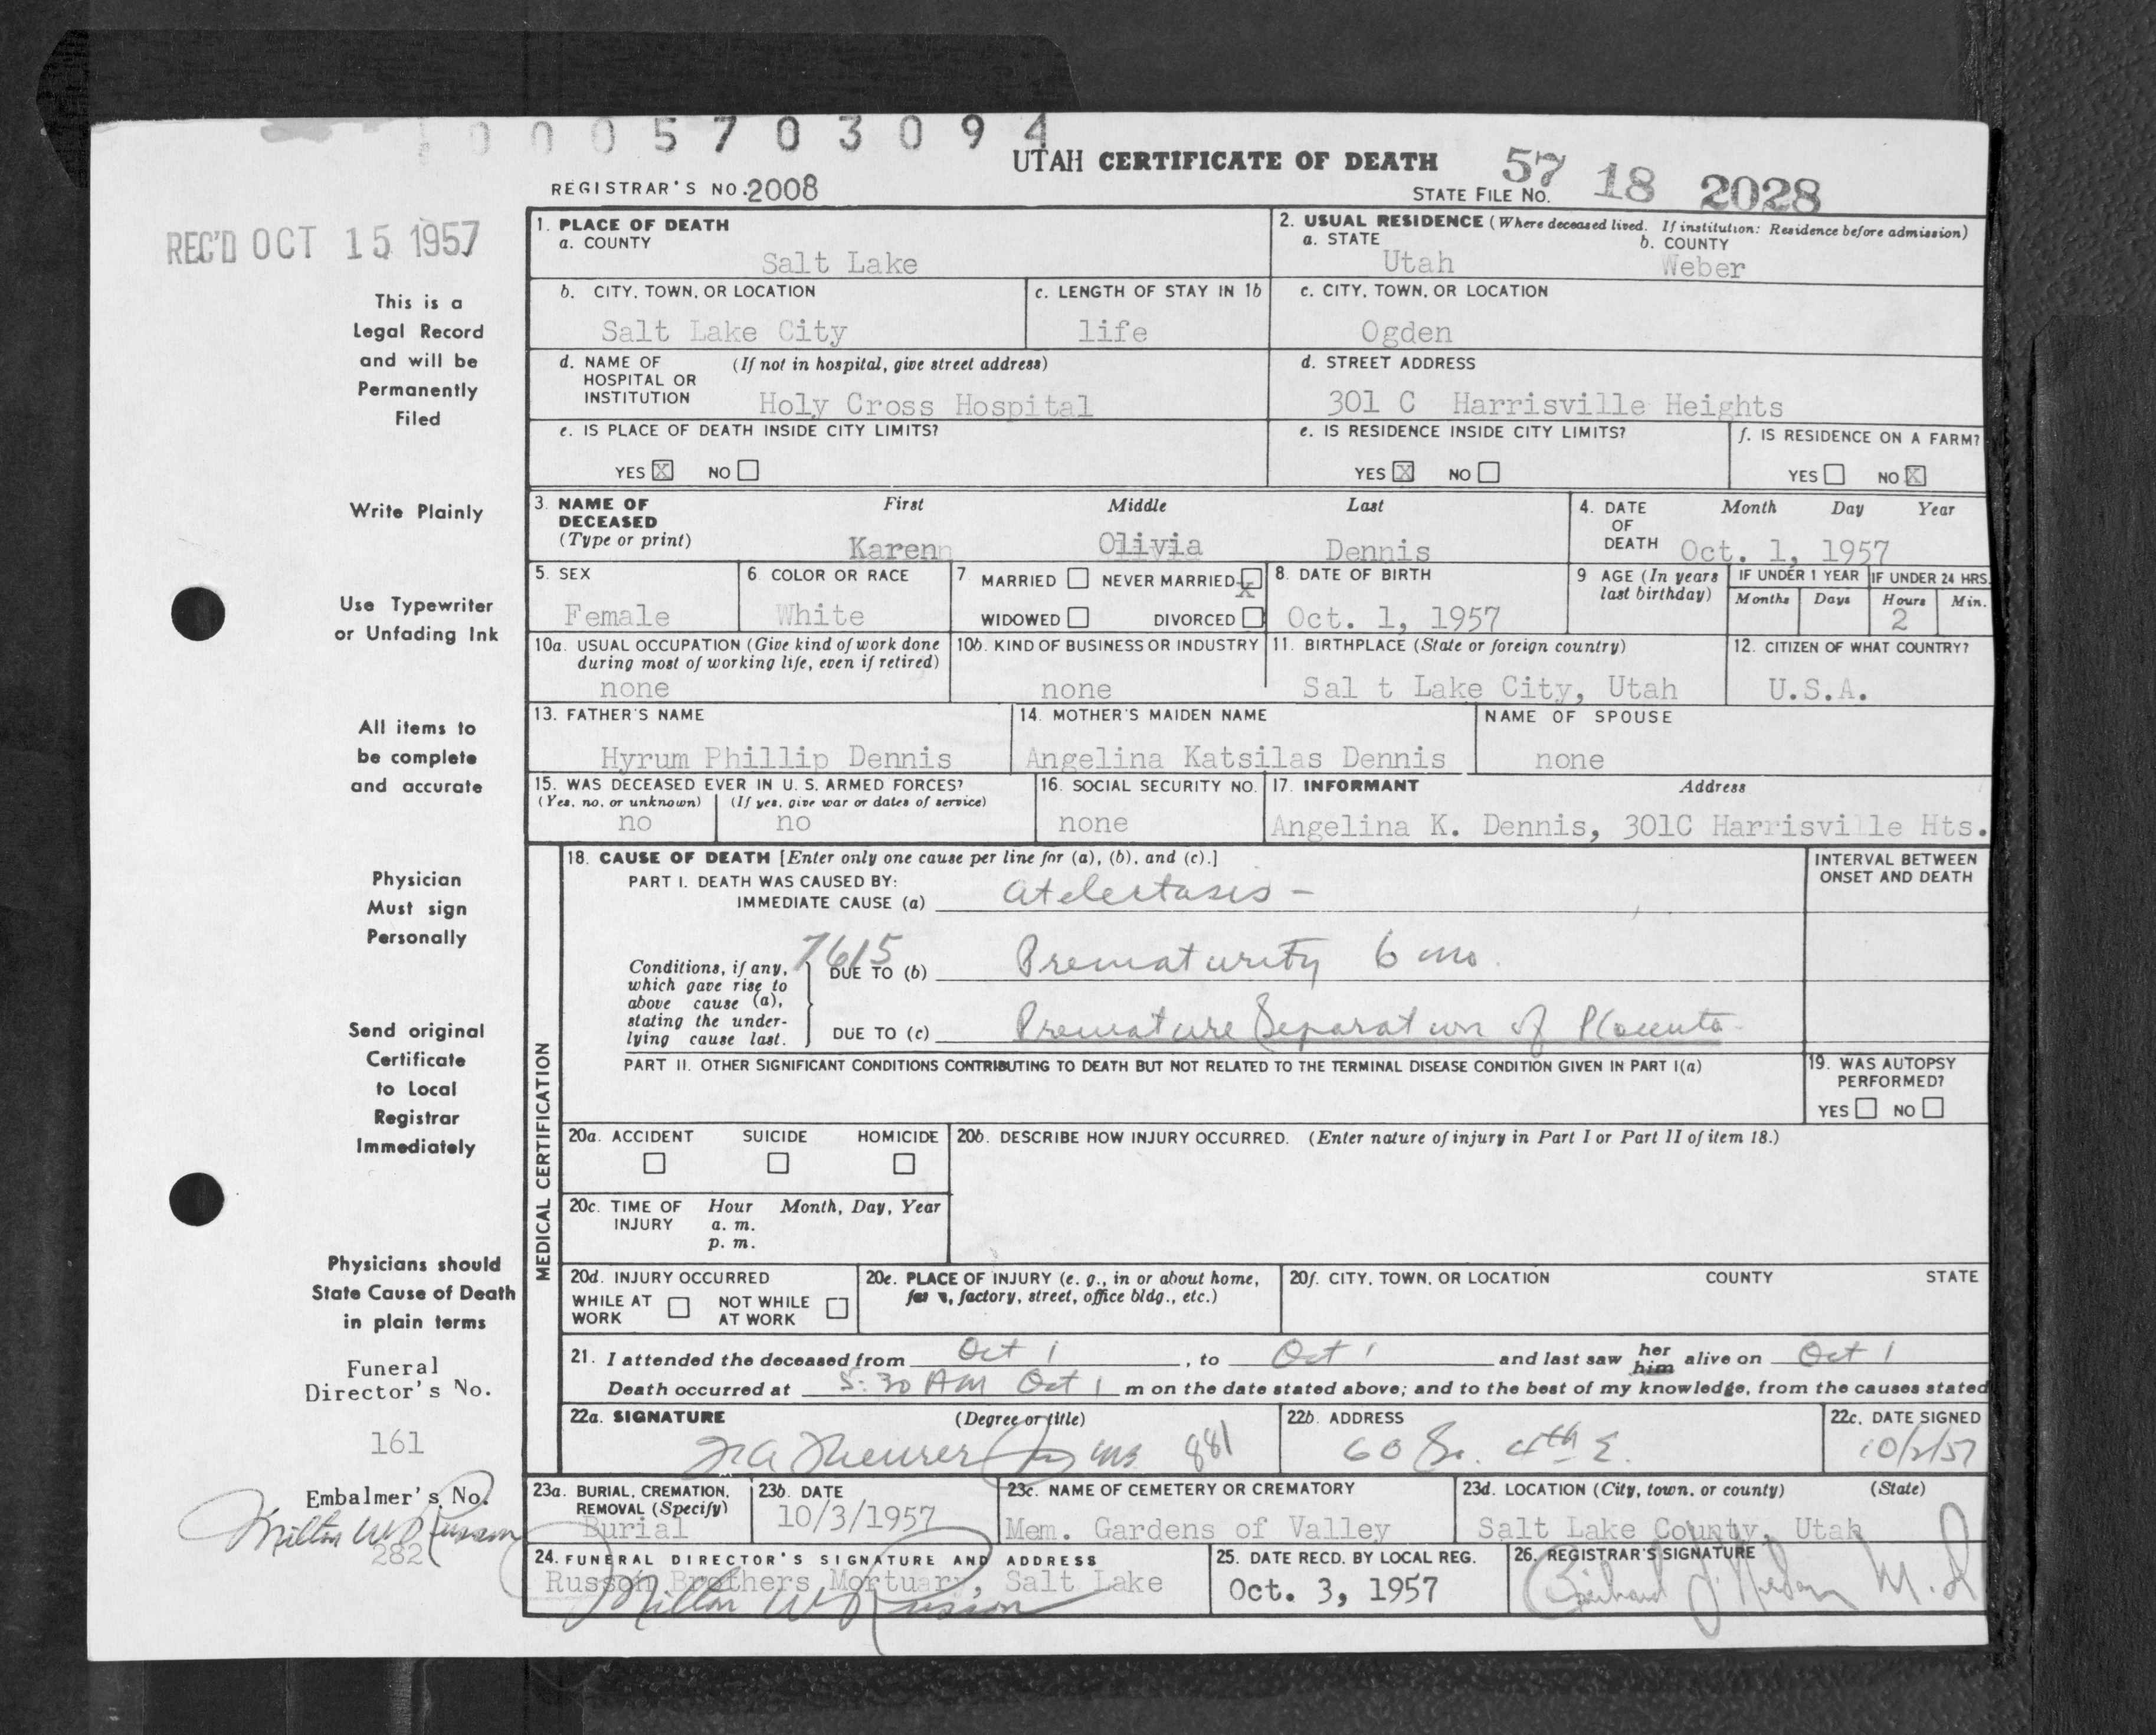 0005703094
UTAH CERTIFICATE OF DEATH
REGISTRAR'S NO. 2008
STATE FILE NO. 57 18 2028
REC'D OCT 15 1957
This is a
Legal Record
and will be
Permanently
Filed
Write Plainly
Use Typewriter
or Unfading Ink
All items to
be complete
and accurate
Physician
Must sign
Personally
Send original
Certificate
to Local
Registrar
Immediately
Physicians should
State Cause of Death
in plain terms
Funeral
Director's No.
161
Embalmer's No.
Milton W Russon
282
1. PLACE OF DEATH
a. COUNTY
Salt Lake
2. USUAL RESIDENCE (Where deceased lived. If institution: Residence before admission)
a. STATE b. COUNTY
Utah Weber
b. CITY, TOWN, OR LOCATION
Salt Lake City
c. LENGTH OF STAY IN 1b
life
c. CITY, TOWN, OR LOCATION
Ogden
d. NAME OF (If not in hospital, give street address)
HOSPITAL OR
INSTITUTION Holy Cross Hospital
d. STREET ADDRESS
301 C Harrisville Heights
e. IS PLACE OF DEATH INSIDE CITY LIMITS?
YES X NO
e. IS RESIDENCE INSIDE CITY LIMITS?
YES X NO
f. IS RESIDENCE ON A FARM?
YES NO X
3. NAME OF First Middle Last
DECEASED
(Type or print) Karenn Olivia Dennis
4. DATE Month Day Year
OF
DEATH Oct. 1, 1957
5. SEX
Female
6. COLOR OR RACE
White
7. MARRIED NEVER MARRIED X
WIDOWED DIVORCED
8. DATE OF BIRTH
Oct. 1, 1957
9 AGE (In years
last birthday)
IF UNDER 1 YEAR
Months Days
IF UNDER 24 HRS.
Hours Min.
2
10a. USUAL OCCUPATION (Give kind of work done
during most of working life, even if retired)
none
10b. KIND OF BUSINESS OR INDUSTRY
none
11. BIRTHPLACE (State or foreign country)
Sal t Lake City, Utah
12. CITIZEN OF WHAT COUNTRY?
U.S.A.
13. FATHER'S NAME
Hyrum Phillip Dennis
14. MOTHER'S MAIDEN NAME
Angelina Katsilas Dennis
NAME OF SPOUSE
none
15. WAS DECEASED EVER IN U. S. ARMED FORCES?
(Yes, no, or unknown) (If yes, give war or dates of service)
no no
16. SOCIAL SECURITY NO.
none
17. INFORMANT Address
Angelina K. Dennis, 301C Harrisville Hts.
MEDICAL CERTIFICATION
18. CAUSE OF DEATH [Enter only one cause per line for (a), (b), and (c).]
PART I. DEATH WAS CAUSED BY:
IMMEDIATE CAUSE (a) Atelectasis -
INTERVAL BETWEEN
ONSET AND DEATH
7615
Conditions, if any,
which gave rise to
above cause (a),
stating the under-
lying cause last.
DUE TO (b) Prematurity 6 mo.
DUE TO (c) Premature Separation of Placenta
PART II. OTHER SIGNIFICANT CONDITIONS CONTRIBUTING TO DEATH BUT NOT RELATED TO THE TERMINAL DISEASE CONDITION GIVEN IN PART I(a)
19. WAS AUTOPSY
PERFORMED?
YES NO
20a. ACCIDENT SUICIDE HOMICIDE
20b. DESCRIBE HOW INJURY OCCURRED. (Enter nature of injury in Part I or Part II of item 18.)
20c. TIME OF Hour Month, Day, Year
INJURY a. m.
p. m.
20d. INJURY OCCURRED
WHILE AT NOT WHILE
WORK AT WORK
20e. PLACE OF INJURY (e. g., in or about home,
factory, street, office bldg., etc.)
20f. CITY, TOWN, OR LOCATION COUNTY STATE
21. I attended the deceased from Oct 1, to Oct 1 and last saw her him alive on Oct 1
Death occurred at 5:30 AM Oct 1 m on the date stated above; and to the best of my knowledge, from the causes stated
22a. SIGNATURE (Degree or title)
Theurer 881
22b. ADDRESS
60 So. 4th E.
22c. DATE SIGNED
10/2/57
23a. BURIAL, CREMATION,
REMOVAL (Specify)
Burial
23b. DATE
10/3/1957
23c. NAME OF CEMETERY OR CREMATORY
Mem. Gardens of Valley
23d. LOCATION (City, town, or county) (State)
Salt Lake County, Utah
24. FUNERAL DIRECTOR'S SIGNATURE AND ADDRESS
Russon Brothers Mortuary, Salt Lake
Milton W Russon
25. DATE RECD. BY LOCAL REG.
Oct. 3, 1957
26. REGISTRAR'S SIGNATURE
M.D